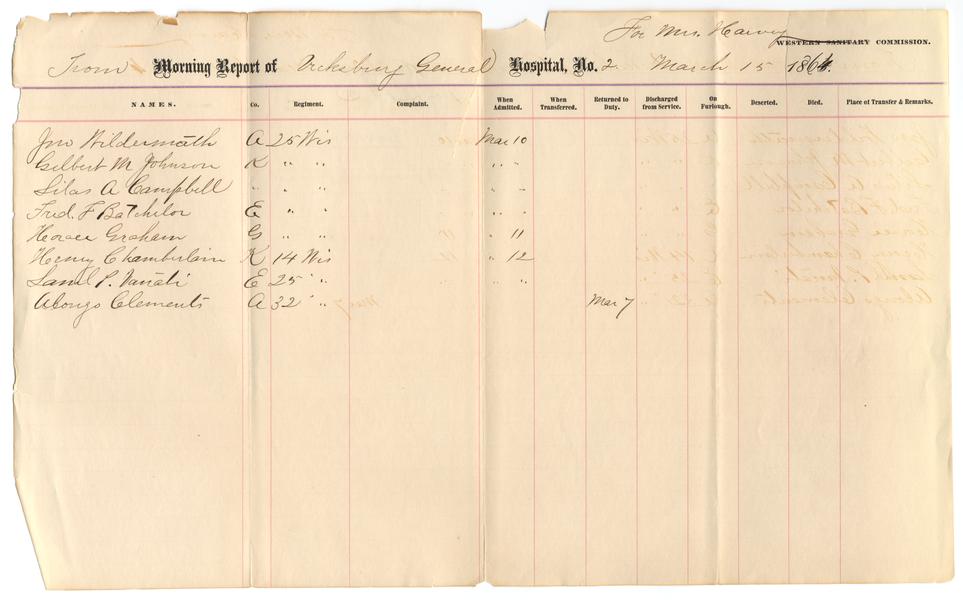 For Mrs. Harvey
WESTERN SANITARY COMMISSION.
From Morning Report of Vicksburg General Hospital, No. 2 March 15 1864.
NAMES. Co. Regiment. Complaint. When Admitted. When Transferred. Returned to Duty. Discharged from Service. On Furlough. Deserted. Died. Place of Transfer & Remarks.
Jno Wildermath A 25 Wis Mar 10
Gilbert M Johnson K " " " "
Silas A Campbell " " " " "
Fred. F Batchelor E " " " "
Horace Graham G " " " 11
Henry Chamberlain K 14 Wis " 12
Saml P. E 25 " " "
Alonzo Clements A 32 " " Mar 7